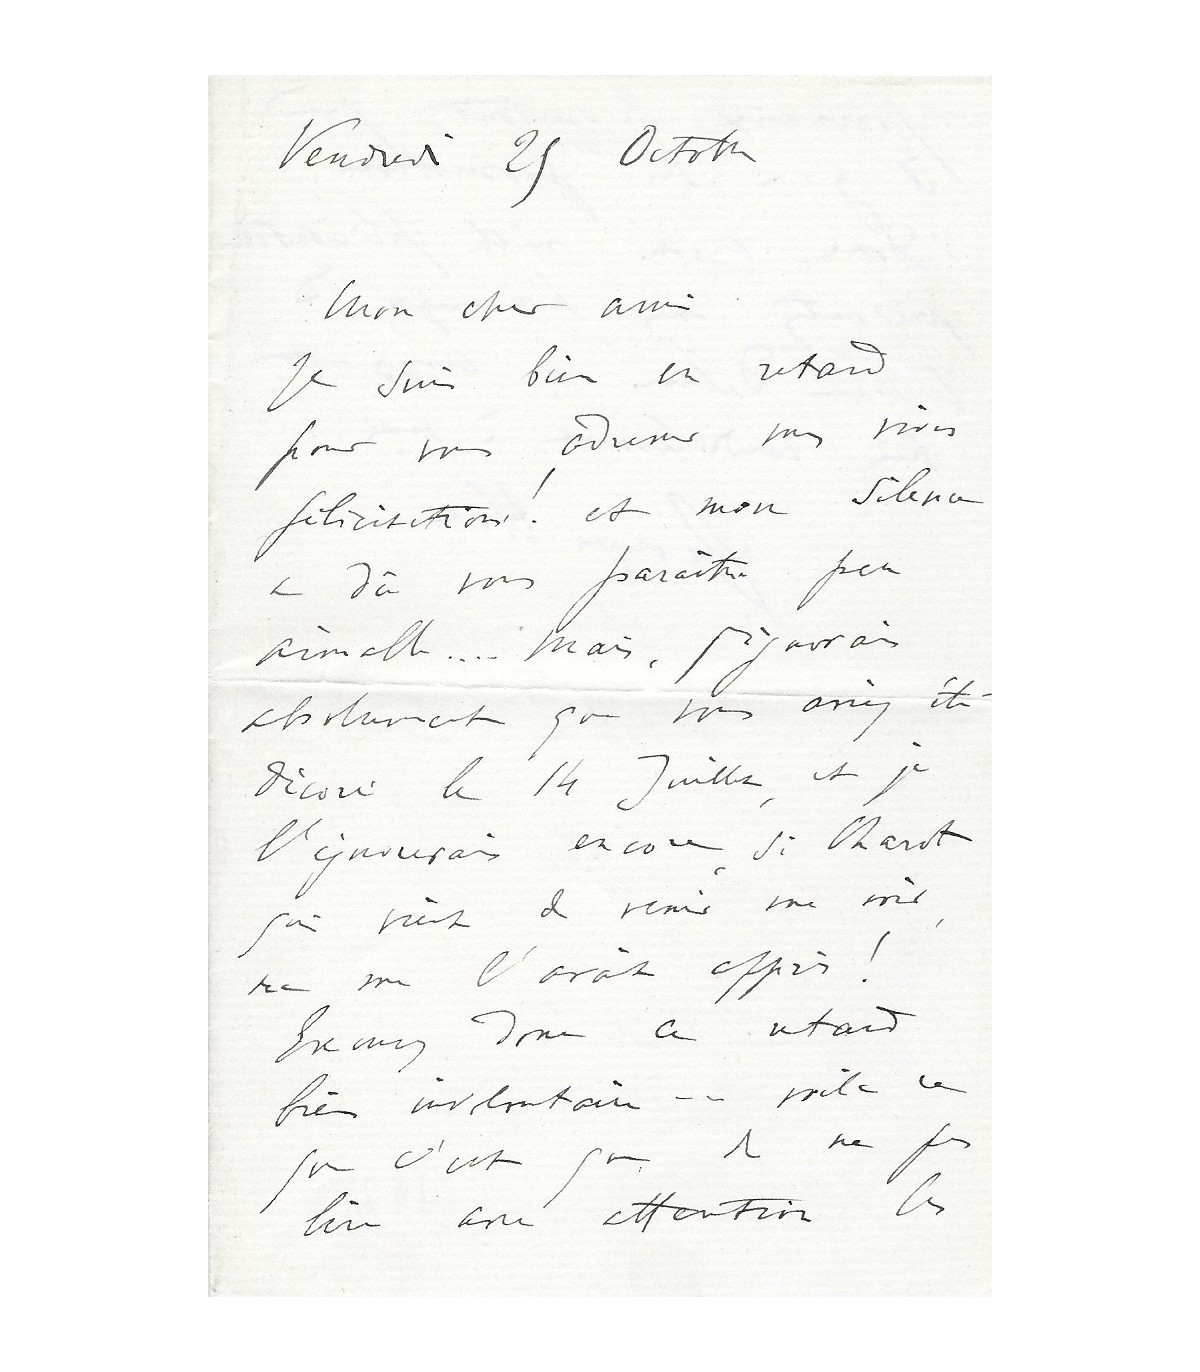 Vendredi 29 Octobre
Mon cher ami
Je suis bien en retard
pour vous adresser mes vives
félicitations! et mon silence
a dû vous paraître peu
aimable.... Mais, j'ignorais
absolument que vous aviez été
décoré le 14 Juillet, et je
l'ignorerais encore, si Charot
qui vient de venir me voir,
ne me l'avait appris!
Excusez donc ce retard
bien involontaire -- voilà ce
que c'est que de ne pas
lire avec attention les